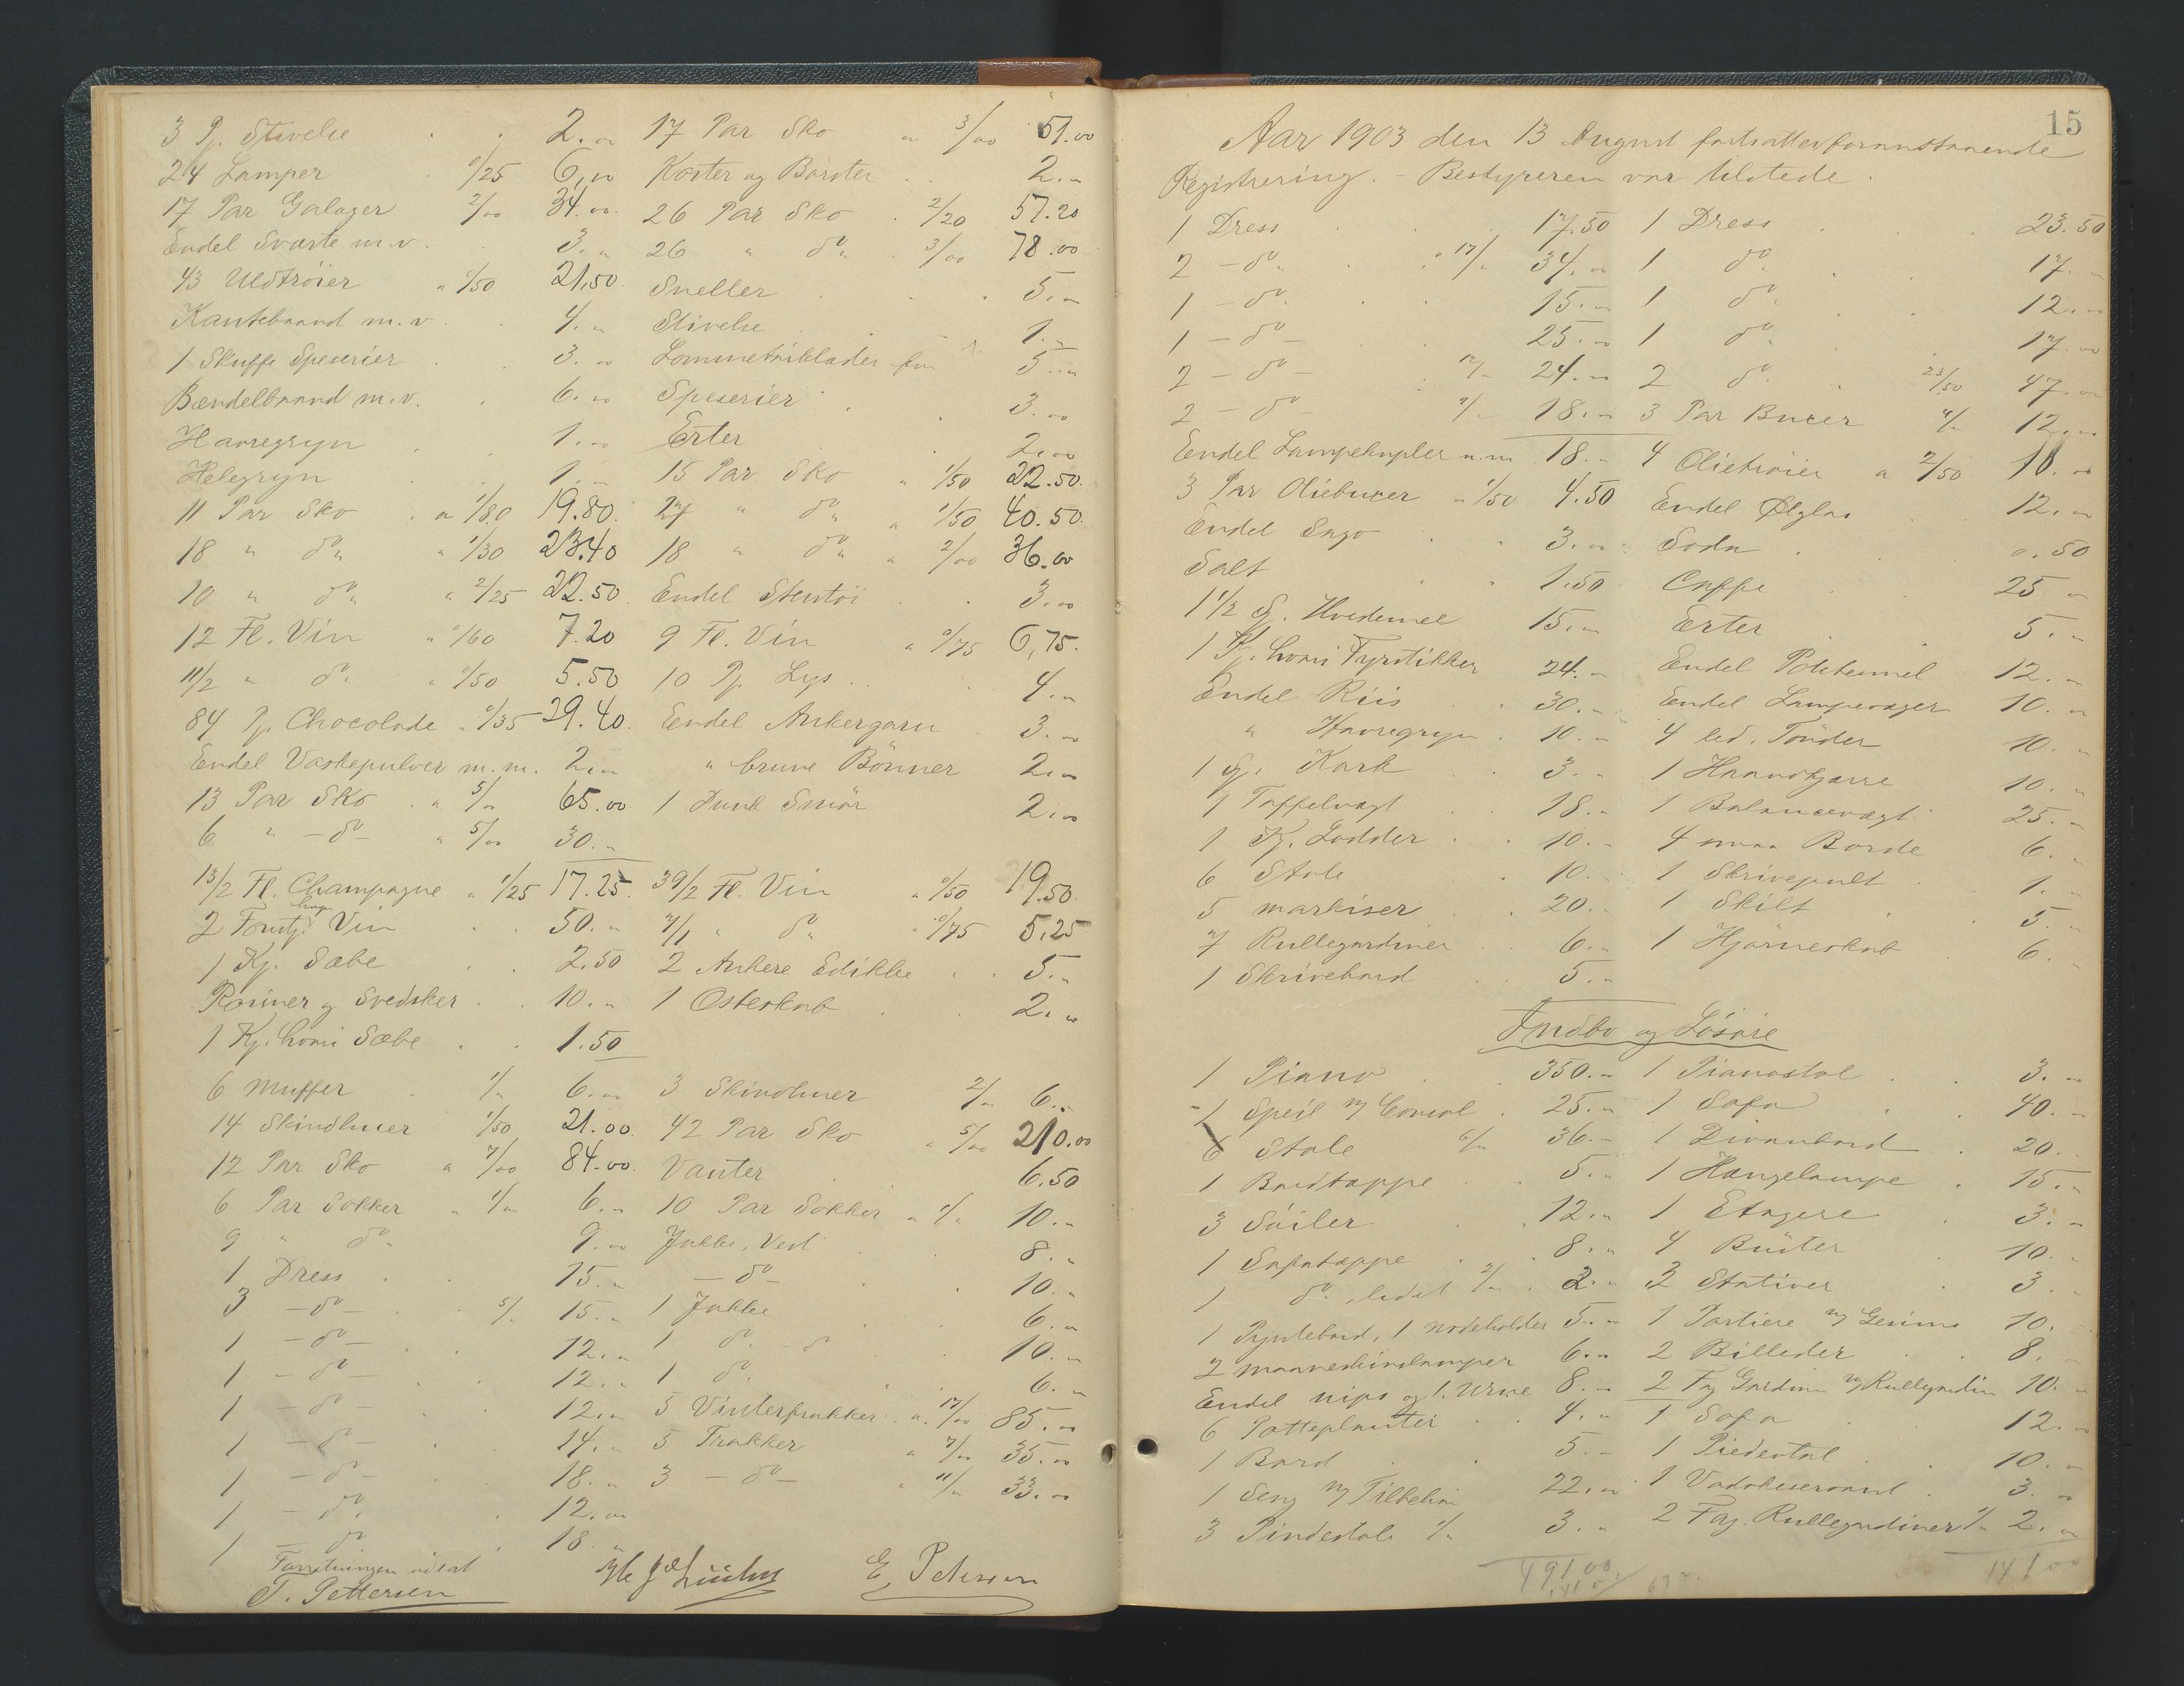 3 Pj. Stivelse . . 2.00 17 Par Sko a 3/00 51.00
24 Lamper . 0/25 6,00 Koster og Børster . . 2."
17 Par Galoger 2/00 34.00 26 Par Sko . 2/20 57.20
Endel Sværte m.v. . 3." 26 " do " . 3/00 78.00
43 Uldtrøier " 0/50 21,50 Sneller . . . 5."
Kantebaand m.v . . 4." Stivelse . . 1."
1 Skuffe Speserier . . 3.00 5."
Bændelbaand m.v. . 6.00 Speserier . . 3.00
Havregryn . . 1.00 Erter . . 2.00
Helegryn . . 1." 15 Par Sko " 1/50 22.50.
11 Par Sko . a 1/80 19.80. 27 " do " a 1/50 40.50.
18 " do " " 1/30 23.40 18 " do " a 2/00 36.00
10 " do " " 2/25 22.50. Endel Stentøi . . 3.00
12 Fl. Vin " 0/60 7.20 9 Fl. Vin a 0/75 6,75.
11/2 " do " " 0/50 5.50 10 Pj. Lys . . 4."
84 Pj. Chocolade " 0/35 29.40. Endel Ankergarn . 3.00
Endel Vaskepulver m.m. 2." " brune Bönner 2.00
13 Par Sko . a 5/" 65.00 1 Dunk Smör 2.00
6 " - do - " 5/00 30."
13/2 Fl. Champagne " 1/25 17.25. 39/2 Fl. Vin " 0/50 19.50.
2 Vin . . 50." 7/1 " do " " 0/75 5.25
1 Kj. Sæbe . . 2.50 2 Ankere Edikke . . 5."
Rosiner og Svedsker . . 10." 1 Osteskab . . 2."
1 Kj. Sæbe . . 1.50
6 Muffer . 1/" 6.00 3 Skindhuer 2/" 6."
14 Skindhuer 1/50 21.00. 42 Par Sko " 5/00 210.00
12 Par Sko a 7/00 84.00. Vanter . 6.50
6 Par Sokker " 1/" 6." 10 Par Sokker " 1/" 10."
9 " do " 9.00 Jakke, Vest . . 8."
1 Dress . . 15." - do - . 10."
3 - do - . . 5/" 15." 1 Jakke . . 6."
1 - do - . . 12." 1 do " - 10."
1 - do - . . 12." 1 do . . 6."
1 - do - . 12." 5 Vinterfrakker a 17/00 85.00
1 - do - . 14." 5 Frakker " 7/" 35.00
1 - do - 18." 3 - do - " 11/" 33.00
1 - do . . 12.00
1 - do . 18."
Forretningen udsat
T. Pettersen E. Petersen
15
Aar 1903 den 13 August fortsattes foranstaaende
Registrering. - Bestyreren var tilstede.
1 Dress . . 17.50 1 Dress . . 23.50
2 - do " . " 17/" 34.00 1 do " . 17."
1 - do . . 15." 1 do " . 12."
1 - do - . 25." 1 do " . 17.00
2 - do - . 12/" 24." 2 do . 23/50 47."
2 - do - 9/" 18." 3 Par Buxer 4/" 12."
Endel Lampekupler m.m 18." 4 Olietrøier a 2/50 10.00
3 Par Oliebuxer " 1/50 4.50 Endel Ølglas . 12."
Endel Sago . . 3." Soda . . 0.50
Salt . . 1.50 Caffe . 25 "
1 1/2 S. Hvedemel 15." Erter . . 5."
1 Kj. Fyrstikker 24." Endel Potetesmel 12."
Endel Riis . . 30." Endel Lampevæger 10."
" Havregryn . 10." 4 led. Tønder . 10."
1 S. Kork . . 3." 1 Haandkjærre 10."
1 Taffelvægt . 18." 1 Balancevægt 25."
1 Kj. Lodder . . 10." 4 smaa Borde 6."
6 Stole . 10." 1 Skrivepult . 1."
5 markiser . . 20." 1 Skilt . 5."
7 Rullegardiner . 6." 1 Hjørneskab . 6."
1 Skrivebord . 5."
Indbo og Løsøre
1 Piano . . 350." 1 Pianostol . . 3."
1 Speil m/ Consol . 25." 1 Sofa . . 40."
6 Stole 6/" 36." 1 Divanbord . 20."
1 Bordtæppe . . 5." 1 Hængelampe . 15."
3 Søiler . . 12." 1 Etagere . 3."
1 Sofatæppe . . 8." 4 Büster . 10."
1 do " ledet 2/" . 2." 3 Stativer . 3."
1 Pyntebord, 1 nodeholder 5." 1 Portiere m/ Gesims 10.
2 maaneskinslamper 6." 2 Billeder . . 8."
Endel nips og 1. Urne 8." 2 Fag Gardiner m/ Rullegardin 10."
6 Potteplanter . . 4." 1 Sofa . . 12."
1 Bord . . 5." 1 Piedestal . . 10."
1 Seng m/ Tilbehør 22." 1 Vadskeservant . 3."
3 Pindestole 1/" 3." 2 Fag. Rullegardiner 1/" 2."
491.00 141.00